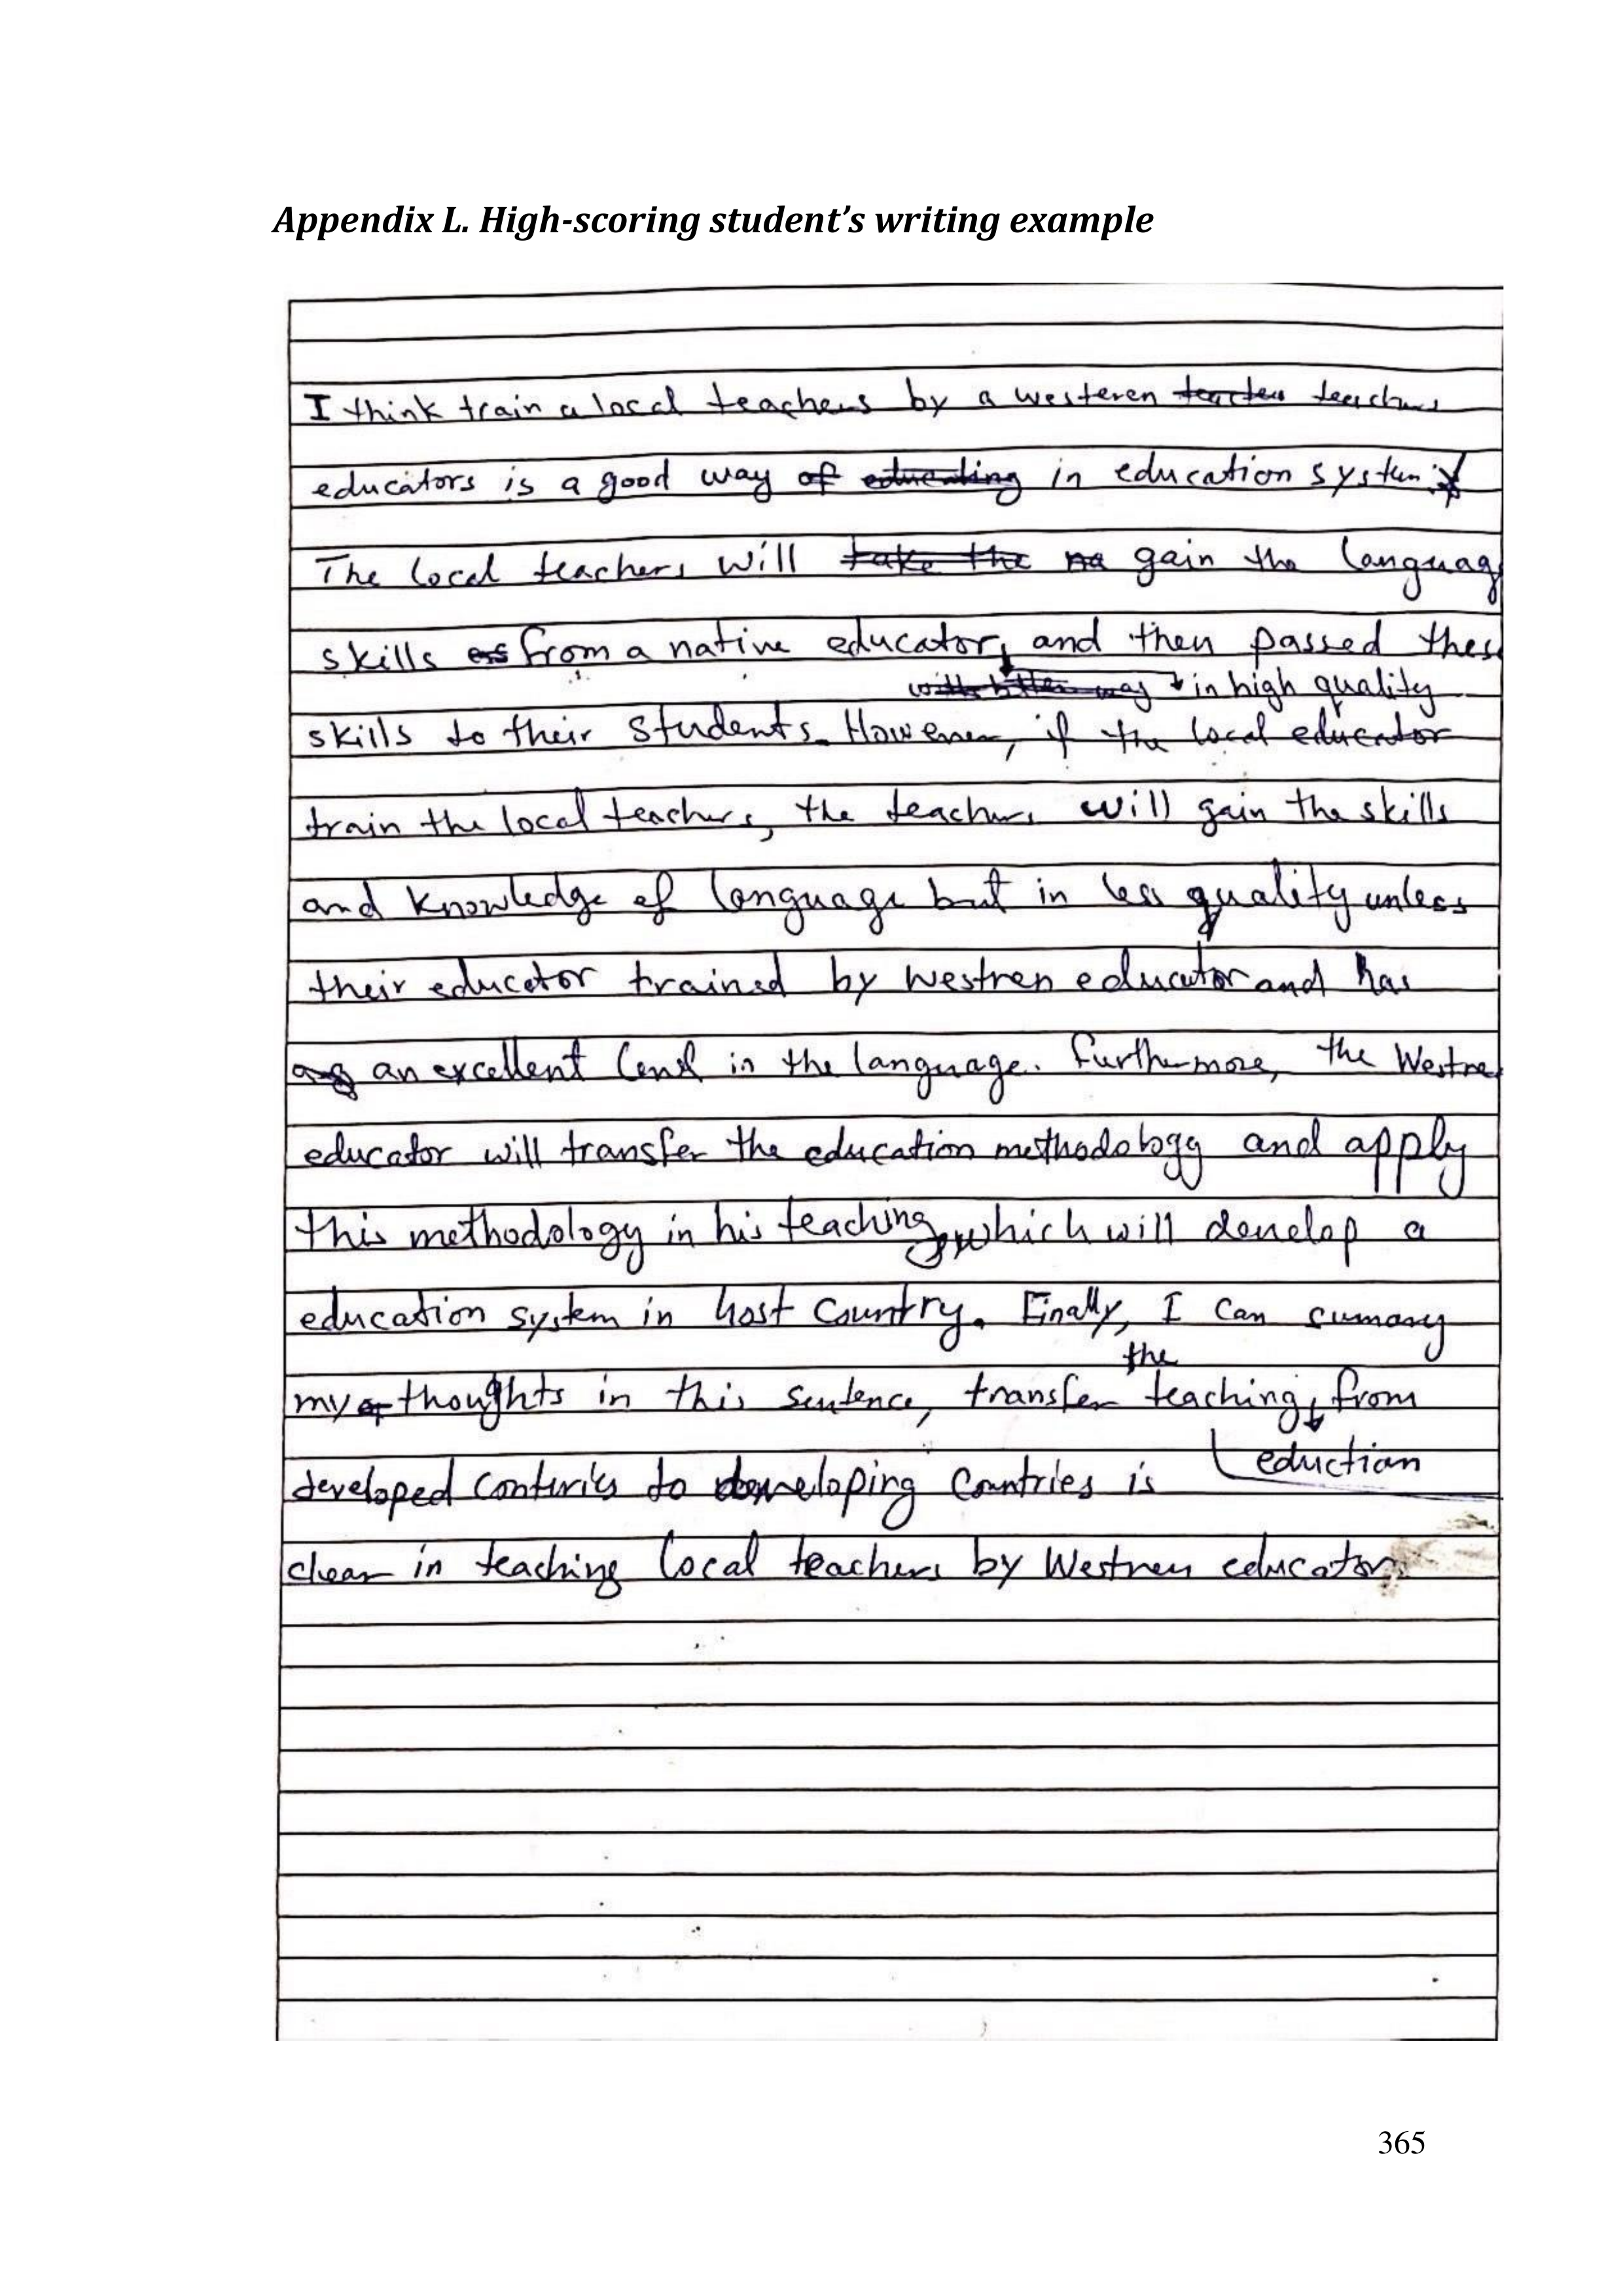 Appendix L. High-scoring student's writing example
I think train a local teachers by a westeren teachers
educators is a good way of educating in education system.
The local teachers will take the na gain the languag
skills from a native educator, and then passed thes
in high quality
skills to their students. However, if the local educator
train the local teachers, the teachers will gain the skills
and knowledge of language but in less quality unless
their educator trained by westren educator and has
an excellent level in the language. Furthermore, the Westre
educator will transfer the education methodology and apply
this methodology in his teaching, which will develop a
education system in host country. Finally, I can sumary
the
my thoughts in this sentence, transfer teaching from
eduction
developed conturies to developing countries is
clear in teaching local teachers by Westren educator.
365